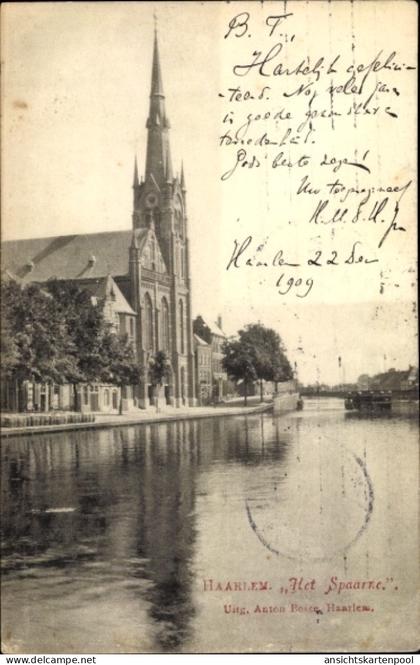 B. T.,
Hartelijk gefelici-
teerd. Nog vele jaren
in goede gezondheid
tevredenheid.
God's beste zegen!
Uw toegenegen
H. M. d. H. Jr
Haarlem 22 Dec
1909
HAARLEM. „Het Spaarne."
Uitg. Anton Bosse, Haarlem.
www.delcampe.net
ansichtskartenpool